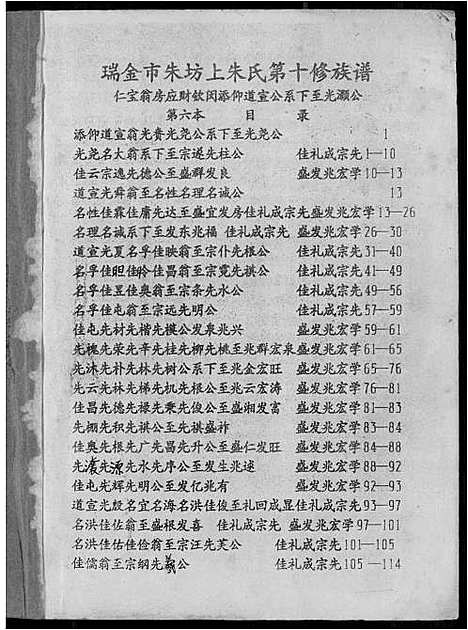 瑞金市朱坊上朱氏第十修族谱
仁宝翁房应财钦闵添仰道宣公系下至光灏公
第六本 目 录
添仰道宣翁光贵光尧公系下至光尧公 1
光尧名大翁系下至宗逐先柱公 佳礼成宗先1—10
佳云宗逸先德公至盛群发良 盛发兆宏学10—13
道宣光舜翁至名性名理名诚公 13
名性佳霖佳庸先达至盛宜发房佳礼成宗先盛发兆宏学13—26
名理名诚系下至发东兆福 佳礼成宗先 盛发兆宏学26—30
道宣光夏名孚佳映翁至宗仆先根公 佳礼成宗先31—40
名孚佳旺佳聆佳昌翁至宗竞先祺公 佳礼成宗先41—49
名孚佳昱佳奥翁至宗条先水公 佳礼成宗先49—56
名孚佳屯翁至宗远先明公 佳礼成宗先57—59
佳屯先材先楷先模公发泉兆兴 盛发兆宏学59—61
先槐先荣先辛先桂先柳先桃至兆群宏泉盛发兆宏学61—65
先沐先朴先林先树公系下至兆金宏旺 盛发兆宏学65—76
先云先林先梯先机先根公至兆云宏涛 盛发兆宏学76—81
佳昌先德先禄先秉先俊公至盛湘发富 盛发兆宏学81—83
先棚先积先祺公至先祺盛祚 盛发兆宏学83—84
佳奥先根先广先昌先升公至盛仁发旺 盛发兆宏学84—88
先滚先源先水先序公至发生兆逑 盛发兆宏学88—92
佳屯先辉先明公至发亿兆有 盛发兆宏学92—93
道宣光殷名宜名海名洪佳俊至礼回成显佳礼成宗先93—97
名洪佳佐翁至盛根发喜 佳礼成宗先 盛发兆宏学97—101
名洪佳佑佳俭翁至宗汪先芙公 佳礼成宗先101—105
佳儒翁至宗纲先羲公 佳礼成宗先105—114